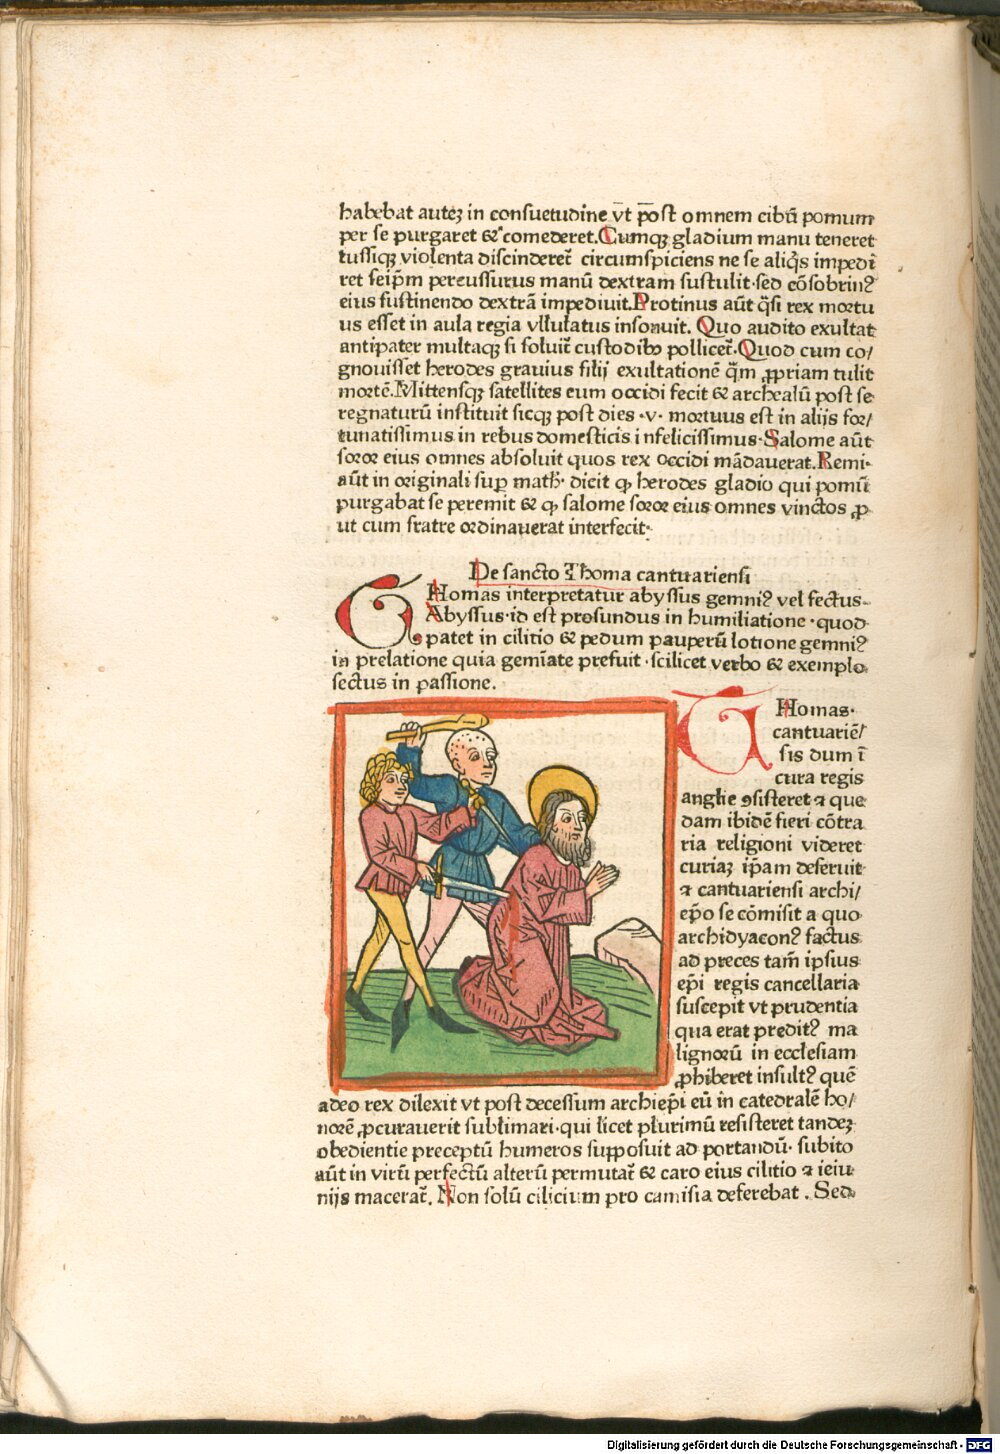 habebat autẽ in consuetudine vt post omnem cibũ pomum
per se purgaret & comederet. Cumqꝫ gladium manu teneret
tussiqꝫ violenta discinderet̃ circumspiciens ne se aliq̃s impedi
ret seip̃m percussurus manũ dextram sustulit·sed cõsobrinꝰ
eius sustinendo dextrã impediuit. Protinus aũt q̃si rex mortu
us esset in aula regia vllulatus insonuit. Quo audito exultat
antipater multaqꝫ si soluit̃ custodibꝰ pollicet̃·Quod cum co/
gnouisset herodes grauius filij exultationẽ q̃m ꝓpriam tulit
mortẽ. Mittensqꝫ satellites eum occidi fecit & archealũ post se
regnaturũ instituit sicqꝫ post dies ·v· mortuus est in alijs for/
tunatissimus in rebus domesticis infelicissimus·Salome aũt
soror eius omnes absoluit quos rex occidi mãdauerat. Remi·
aũt in originali suꝑ math· dicit ꝙ herodes gladio qui pomũ
purgabat se peremit & ꝙ salome soror eius omnes vinctos ꝓ
ut cum fratre ordinauerat interfecit·
De sancto Thoma cantuariensi
THomas interpretatur abyssus geminꝰ vel sectus·
Abyssus·id est profundus in humiliatione·quod
patet in cilitio & pedum pauperũ lotione geminꝰ
in prelatione quia gemiãte prefuit·scilicet verbo & exemplo
sectus in passione.
THomas·
cantuariẽ/
sis dum ĩ
cura regis
anglie ꝯsisteret ⁊ que
dam ibidẽ fieri cõtra
ria religioni videret
curiaꝫ ip̃am deseruit
⁊ cantuariensi archi/
ep̃o se cõmisit a quo
archidyaconꝰ factus
ad preces tam̃ ipsius
ep̃i regis cancellaria
suscepit vt prudentia
qua erat preditꝰ ma
lignorũ in ecclesiam
ꝓhiberet insultꝰ quẽ
adeo rex dilexit vt post decessum archiep̃i eũ in catedralẽ ho/
norẽ ꝓcurauerit sublimari·qui licet plurimũ resisteret tandeꝫ
obedientie preceptũ humeros supposuit ad portandũ· subito
aũt in virũ perfectũ alterũ permutat̃ & caro eius cilitio ⁊ ieiu
nijs macerat̃. Non solũ cilicium pro camisia deferebat . Sed
Digitalisierung gefördert durch die Deutsche Forschungsgemeinschaft - DFG